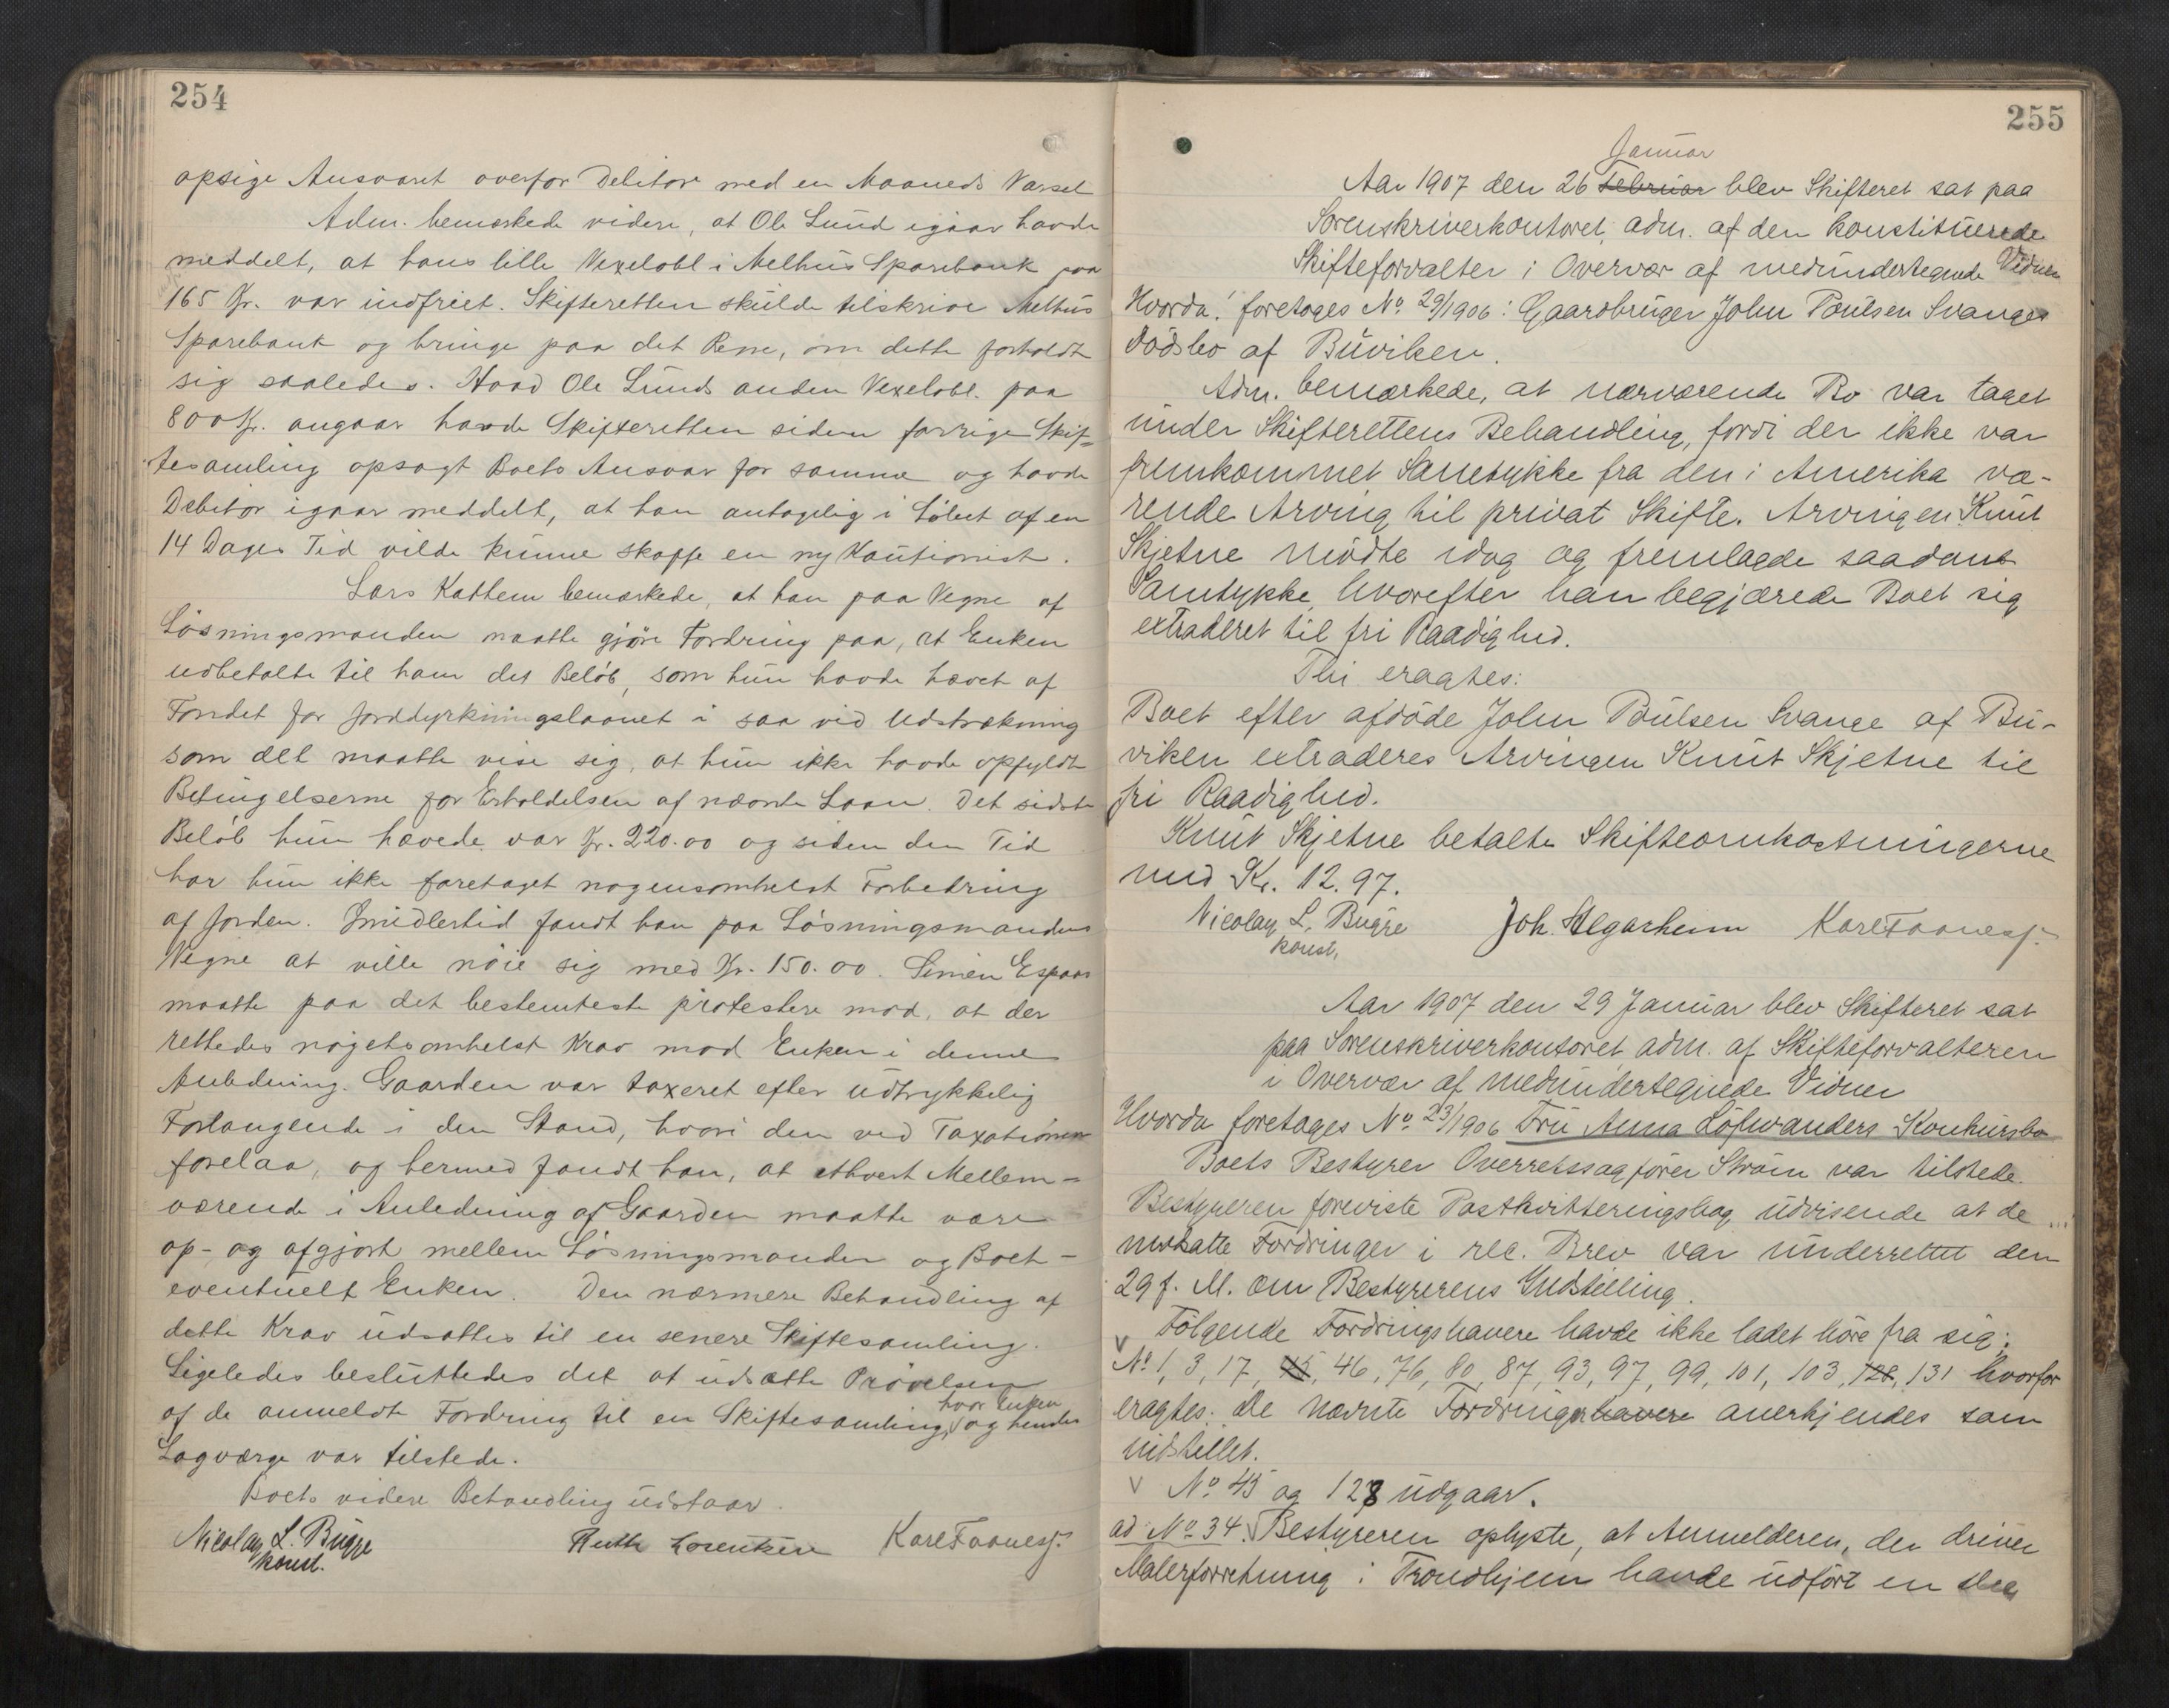 254
opsige Ansvaret overfor Debitor med en Maaneds Varsel
Adm. bemærkede videre, at Ole Lund igaar havde
meddelt, at hans lille Vexelobl i Melhus Sparebank paa
165 Kr. var indfriet. Skifteretten skulde tilskrive Melhus
Sparebank og bringe paa det Rene, om dette forholdt
sig saaledes. Hvad Ole Lunds anden Vexelobl. paa
800 Kr. angaar havde Skifteretten siden forrige Skif-
tesamling opsagt Boets Ansvar for samme og havde
Debitor igaar meddelt, at han antagelig i Løbet af en
14 Dages Tid vilde kunne skaffe en ny Kautionist.
Lars Kattem bemærkede, at han paa Vegne af
Løsningsmanden maatte gjøre Fordring paa, at Enken
udbetalte til ham det Beløb, som hun havde hævet af
Fondet for Jorddyrkningslaanet i saa vid Udstrækning
som det maatte vise sig, at hun ikke havde opfyldt
Betingelserne for Erholdelsen af nævnte Laan. Det sidste
Beløb hun hævede var Kr. 220.00 og siden den Tid
har hun ikke foretaget nogensomhelst Forbedring
af Jorden. Imidlertid fandt han paa Løsningsmandens
Vegne at ville nøie sig med Kr. 150.00. Simen Espaas
maatte paa det bestemteste protestere mod, at der
rettedes nogetsomhelst Krav mod Enken i denne
Anledning. Gaarden var taxeret efter udtrykkelig
Forlangende i den Stand, hvori den ved Taxationen
forelaa, og hermed fandt han, at ethvert Mellem-
værende i Anledning af Gaarden maatte være
op- og afgjort mellem Løsningsmanden og Boet -
eventuelt Enken. Den nærmere Behandling af
dette Krav udsattes til en senere Skiftesamling.
Ligeledes besluttedes det at udsætte Prøvelsen
af de anmeldte Fordring til en Skiftesamling, hvor Enken og hendes
Lagværge var tilstede.
Boets videre Behandling udstaar.
Nicolay L. Bugge
konst.
Ruth Lorentzen
Kare Faaness.
255
Januar
Aar 1907 den 26 Februar blev Skifteret sat paa
Sorenskriverkontoret, adm. af den konstituerede
Skifteforvalter i Overvær af medundertegnede Vidner
Hvorda! foretoges No 29/1906: Gaardbruger John Poulsen Svanges
dødsbo af Buviken.
Adm. bemærkede, at nærværende Bo var taget
under Skifterettens Behandling, fordi der ikke var
fremkommet Samtykke fra den i Amerika væ-
rende Arving til privat Skifte. Arvingen Knut
Skjetne mødte idag og fremlagde saadant
Samtykke, hvorefter han begjærede Boet sig
extraderet til fri Raadighed.
Thi eragtes:
Boet efter afdøde John Poulsen Svange af Bu-
viken extraderes Arvingen Knut Skjetne til
fri Raadighed.
Knut Skjetne betalte Skifteomkostningerne
med Kr. 12.97.
Nicolay L. Bugge
konst.
Joh. Algarheim
Kare Faaness.
Aar 1907 den 29 Januar blev Skifteret sat
paa Sorenskriverkontoret adm. af Skifteforvalteren
i Overvær af medundertegnede Vidner
Hvorda foretages No 23/1906 Fru Anna Löfwanders Konkursbo
Boets Bestyrer Overretssagfører Strøm var tilstede.
Bestyreren foreviste Postkvitteringsbog udvisende at de
nedsatte Fordringer i rec. Brev var underrettet den
29 f. M. om Bestyrerens Indstilling.
Følgende Fordringshavere havde ikke ladet høre fra sig:
V No 1, 3, 17, 45, 46, 76, 80, 87, 93, 97, 99, 101, 103, 128, 131 hvorfor
eragtes: De nævnte Fordringshavere anerkjendes som
indstillet.
V No 45 og 128 udgaar.
ad No 34. Bestyreren oplyste, at Anmelderen, der driver
Malerforretning i Trondhjem havde udført en del